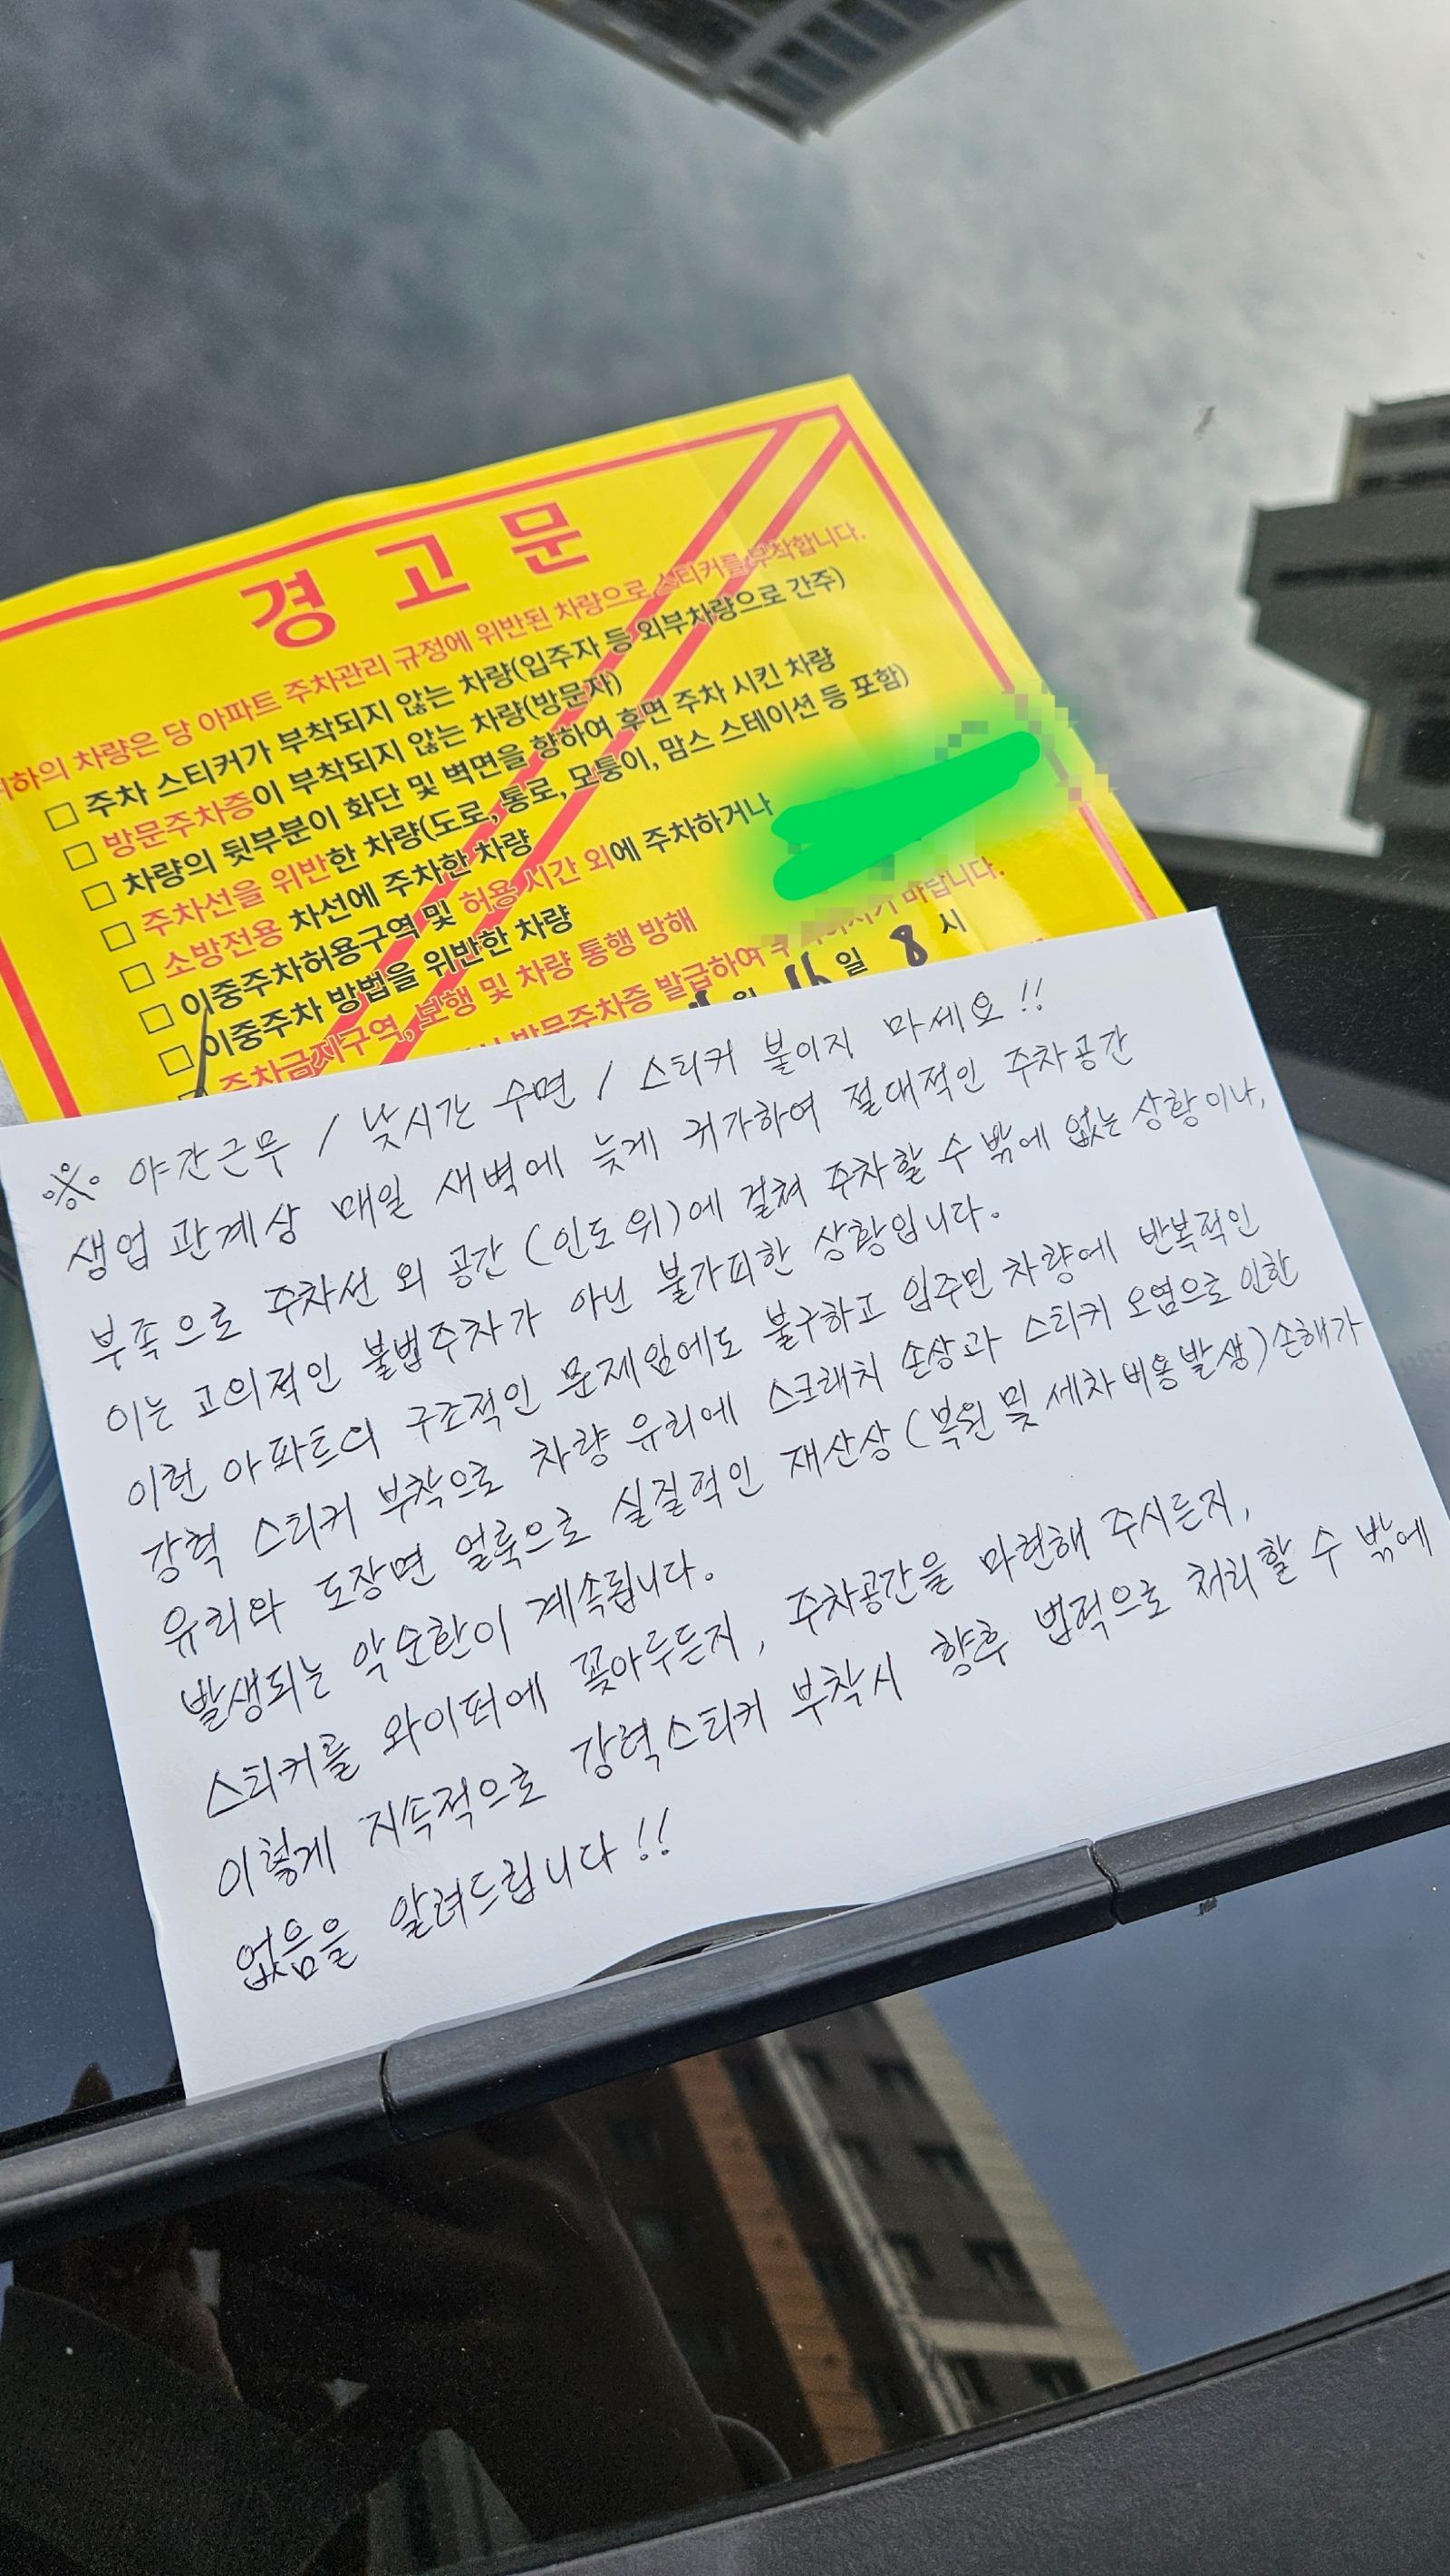 경 고 문
하의 차량은 당 아파트 주차관리 규정에 위반된 차량으로 스티커를 부착합니다.
□ 주차 스티커가 부착되지 않는 차량(입주자 등 외부차량으로 간주)
□ 방문주차증이 부착되지 않는 차량(방문자)
□ 차량의 뒷부분이 화단 및 벽면을 향하여 후면 주차 시킨 차량
□ 주차선을 위반한 차량(도로, 통로, 모퉁이, 맘스 스테이션 등 포함)
□ 소방전용 차선에 주차한 차량
□ 이중주차허용구역 및 허용 시간 외에 주차하거나
이중주차 방법을 위반한 차량
□ 주차금지구역, 보행 및 차량 통행 방해
방문주차증 발급하여 바랍니다.
월 16일 8 시
※ 야간근무 / 낮시간 수면 / 스티커 붙이지 마세요!!
생업 관계상 매일 새벽에 늦게 귀가하여 절대적인 주차공간
부족으로 주차선 외 공간 (인도 위)에 걸쳐 주차할 수 밖에 없는 상황이나,
이는 고의적인 불법주차가 아닌 불가피한 상황입니다.
이런 아파트의 구조적인 문제임에도 불구하고 입주민 차량에 반복적인
강력 스티커 부착으로 차량 유리에 스크래치 손상과 스티커 오염으로 인한
유리와 도장면 얼룩으로 실질적인 재산상 (복원 및 세차비용발생) 손해가
발생되는 악순환이 계속됩니다.
스티커를 와이퍼에 꽂아두든지, 주차공간을 마련해 주시든지,
이렇게 지속적으로 강력스티커 부착시 향후 법적으로 처리할 수 밖에
없음을 알려드립니다!!